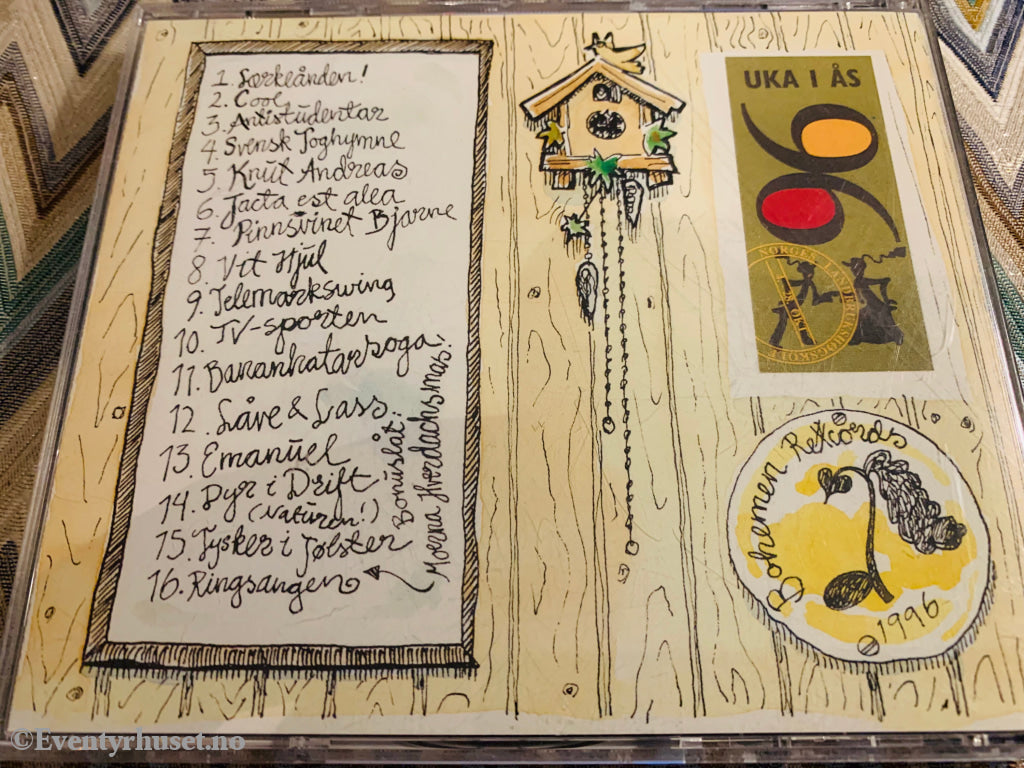 1. Lærkeånden!
2. Cool
3. Antistudentar
4. Svensk Toghymne
5. Knut Andreas
6. Jacta est alea
7. Pinnsvinet Bjarne
8. Vit Hjul
9. Telemarkswing
10. TV-sporten
11. Banankatarsoga
12. Låve & Lass
13. Emanuel
14. Dyr i Drift
(Naturen!)
15. Tysker i Jølster
16. Ringsangen
Bonuslåt:
Hverdachsmas.
UKA I ÅS
96
NORGES LANDBRUKSHØGSKOLE
Bohemen Rekcords
1996
©Eventyrhuset.no